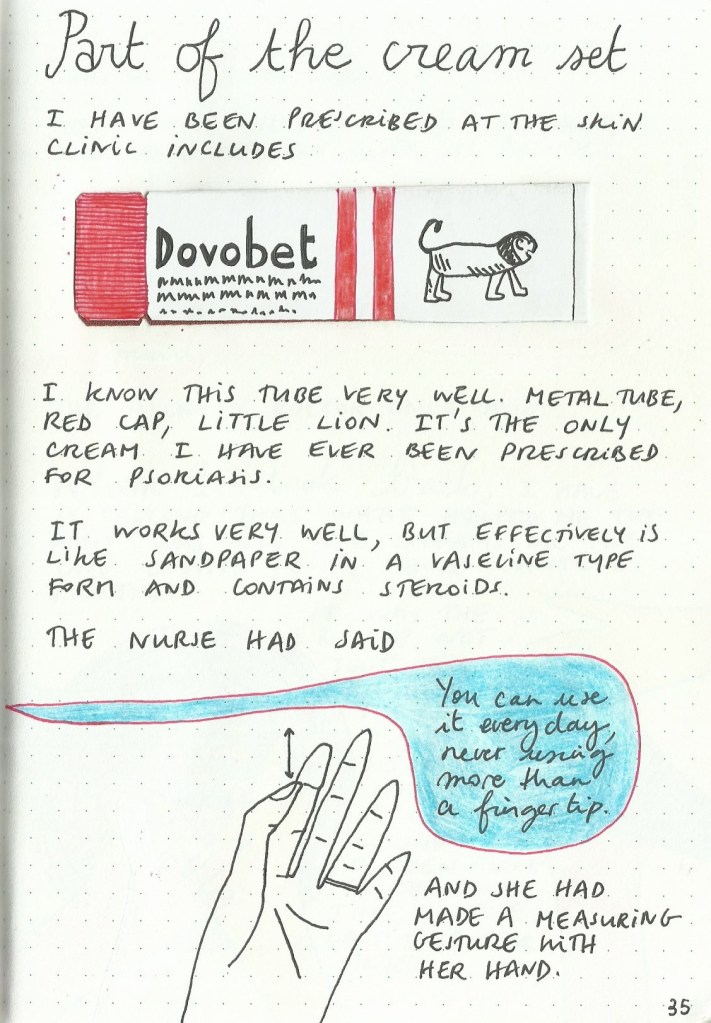 Part of the cream set
I HAVE BEEN PRESCRIBED AT THE SKIN
CLINIC INCLUDES
Dovobet
I KNOW THIS TUBE VERY WELL. METAL TUBE,
RED CAP, LITTLE LION. IT'S THE ONLY
CREAM I HAVE EVER BEEN PRESCRIBED
FOR PSORIASIS.
IT WORKS VERY WELL, BUT EFFECTIVELY IS
LIKE SANDPAPER IN A VASELINE TYPE
FORM AND CONTAINS STEROIDS.
THE NURSE HAD SAID
You can use
it everyday,
never using
more than
a finger tip.
AND SHE HAD
MADE A MEASURING
GESTURE WITH
HER HAND.
35